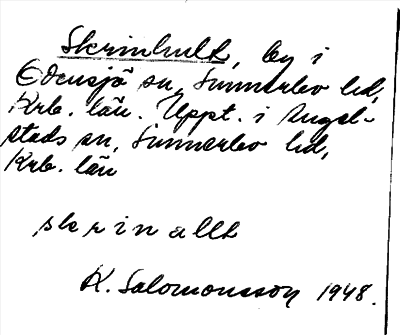 Skrinhult, by i
Edensjö sn, Sunnerbo hd,
Krb. län. Uppt. i Angel-
stads sn, Sunnerbo hd,
Krb. län
skrinallt
K. Salomonsson 1948.